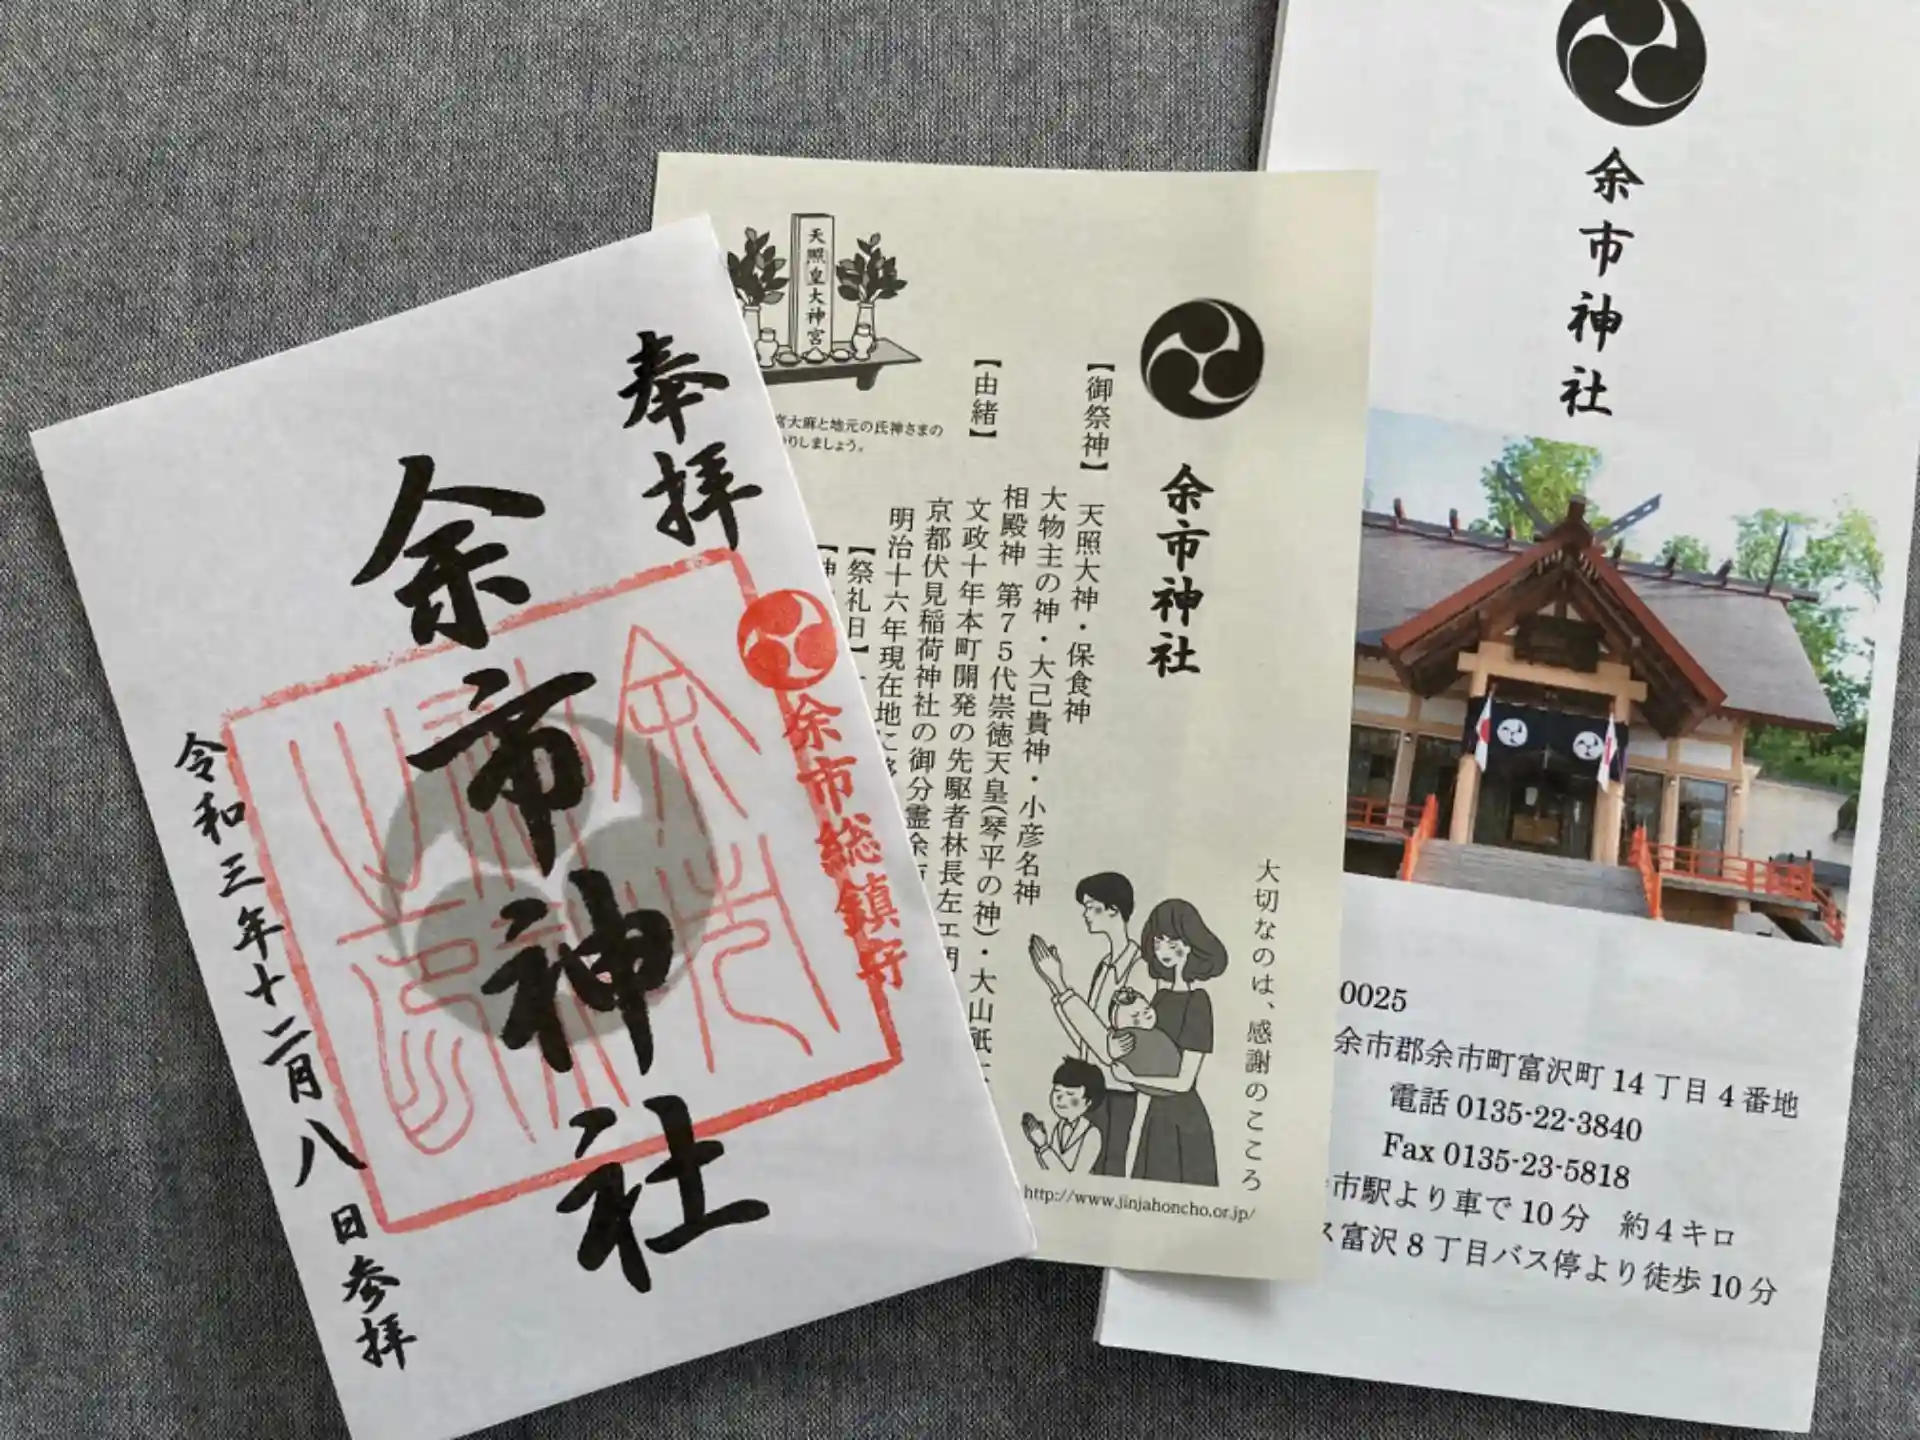 奉拝
余市神社
余市総鎮守
令和三年十二月八日参拝
天照皇大神宮
宮大麻と地元の氏神さまの
りしましょう。
余市神社
【御祭神】 天照大神・保食神
大物主の神・大己貴神・小彦名神
相殿神 第75代崇徳天皇(琴平の神)・大山祇
【由緒】
文政十年本町開発の先駆者林長左エ門
京都伏見稲荷神社の御分霊余市
明治十六年現在地に移
【祭礼日】
【神
大切なのは、感謝のこころ
http://www.jinjahoncho.or.jp/
余市神社
0025
余市郡余市町富沢町14丁目4番地
電話 0135-22-3840
Fax 0135-23-5818
市駅より車で10分 約4キロ
ス富沢8丁目バス停より徒歩10分